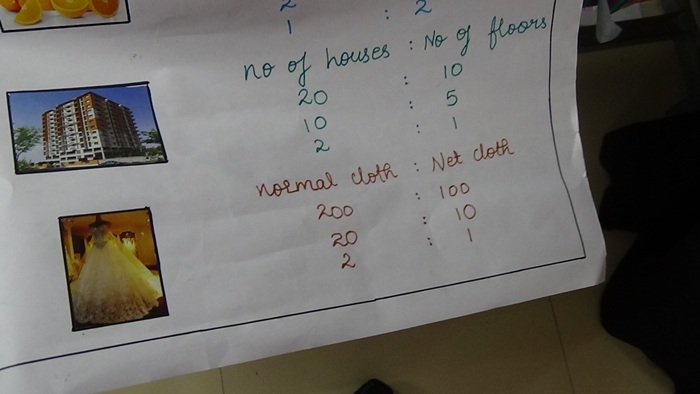 2
1 : 2
no of houses : No of floors
20 : 10
10 : 5
2 : 1
normal cloth : Net cloth
200 : 100
20 : 10
2 : 1